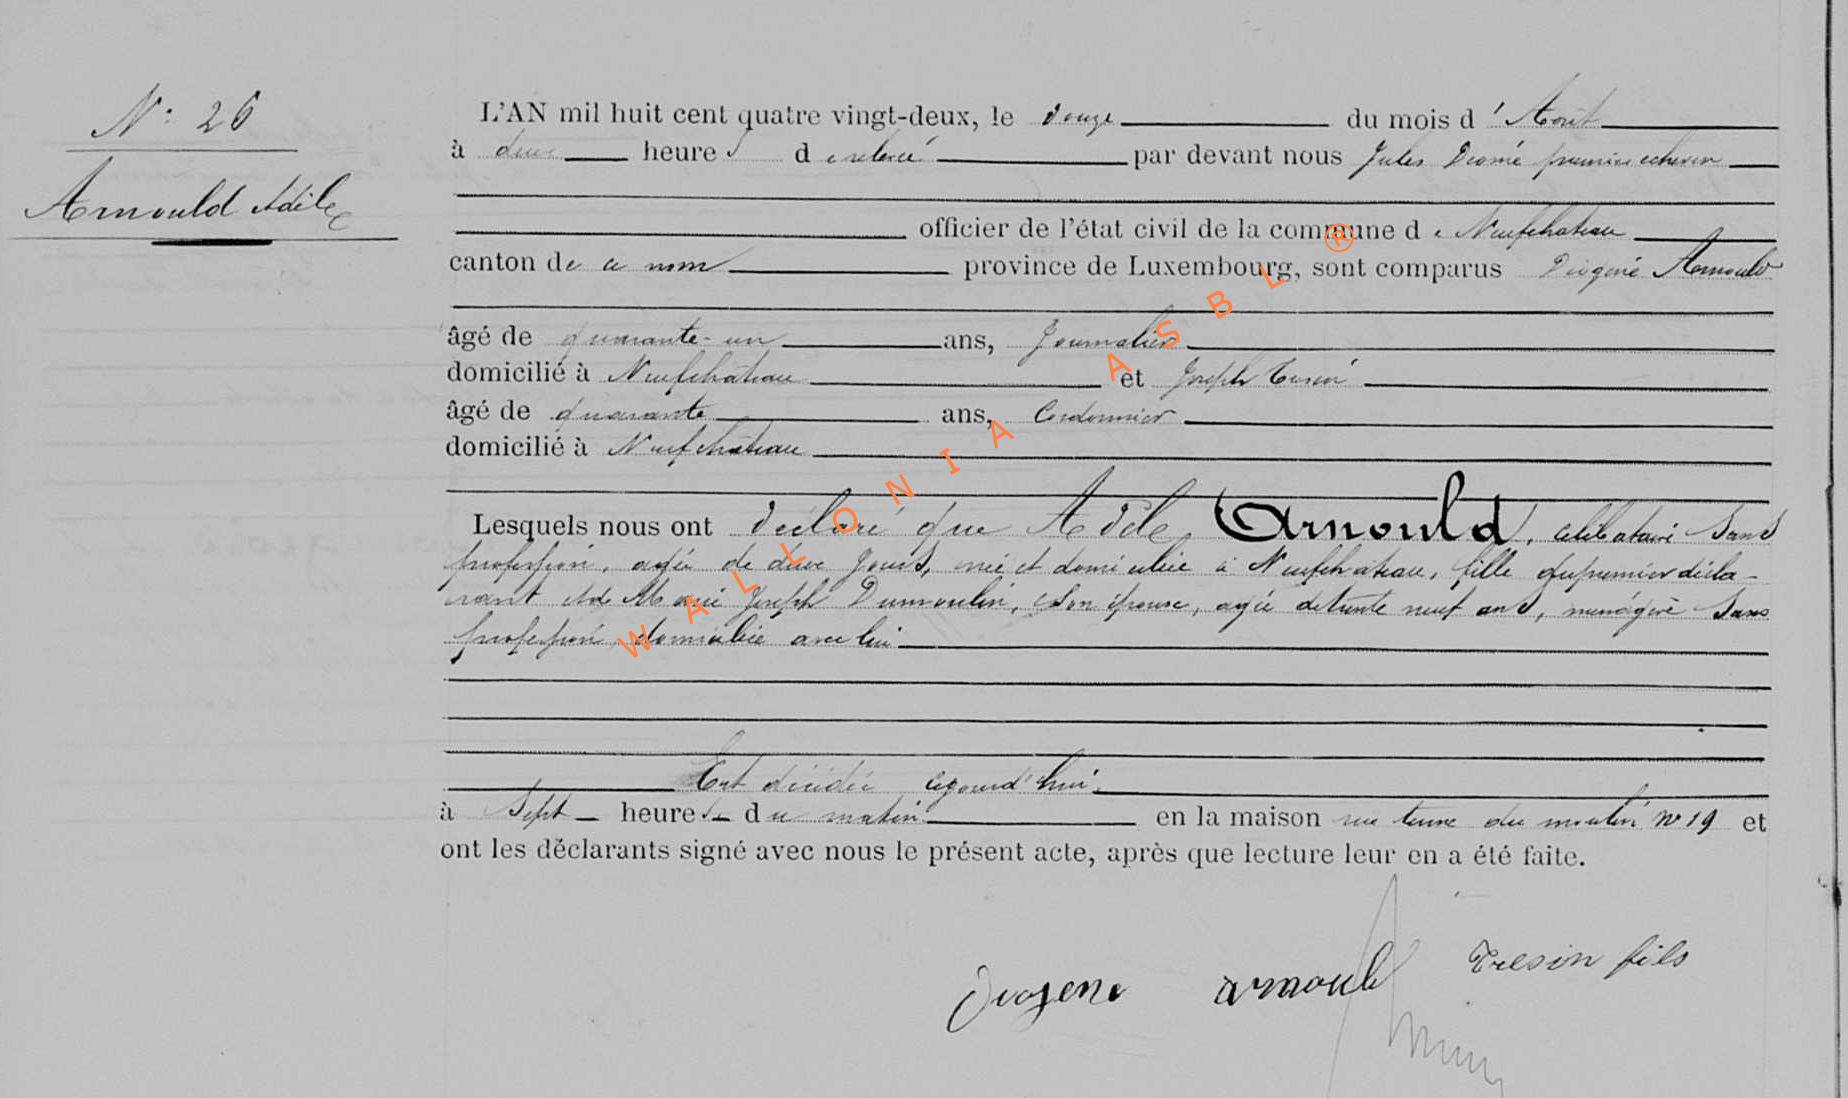 N° 26
Arnould Adèle
L'AN mil huit cent quatre vingt-deux, le douze du mois d'Août
à deux heures de relevée par devant nous Jules premier échevin
officier de l'état civil de la commune de Neufchâteau
canton de ce nom province de Luxembourg, sont comparus Diogène Arnould
âgé de quarante-un ans, Journalier
domicilié à Neufchâteau et Joseph
âgé de quarante ans, Cordonnier
domicilié à Neufchâteau
Lesquels nous ont déclaré que Adèle Arnould, célibataire sans
profession, agée de deux jours, née et domiciliée à Neufchâteau, fille du premier décla-
rant et de Marie Joseph Dumoulin, son épouse, agée de trente neuf ans, ménagère sans
profession, domiciliée avec lui
Est décédée cejourd'hui
à sept heures du matin en la maison rue du moulin n° 19 et
ont les déclarants signé avec nous le présent acte, après que lecture leur en a été faite.
diogene arnould Tresin fils
WALLONIA ASBL ®